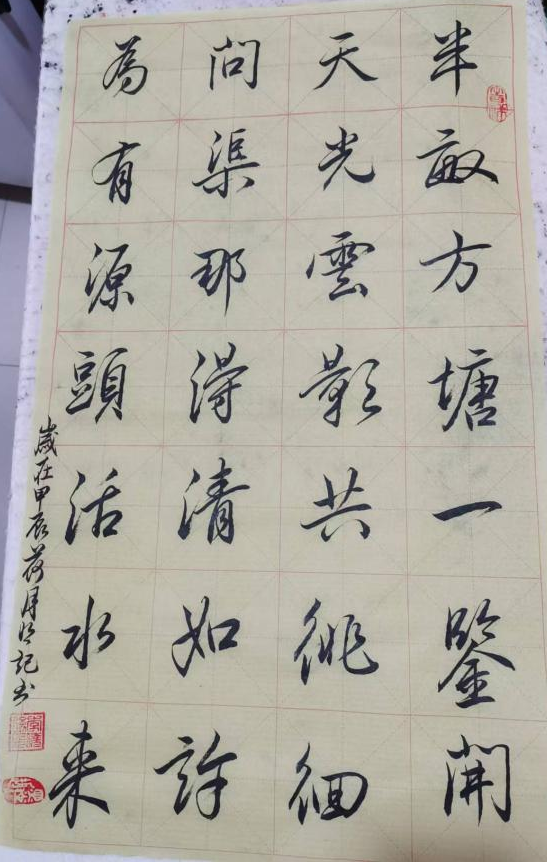 半畝方塘一鑒開
天光雲影共徘徊
問渠那得清如許
為有源頭活水来
歲在甲辰荷月 記书